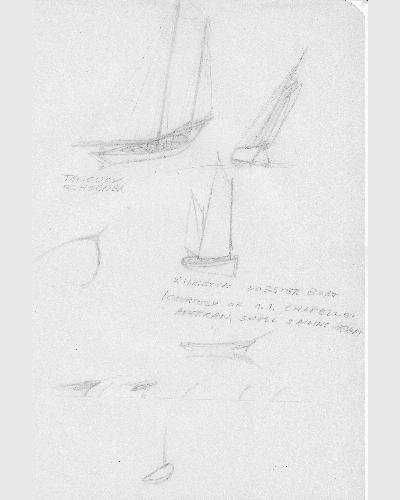 SCHOONER
KINGSTON LOBSTER BOAT
(COURTESY OF H.I. CHAPELLE,
AMERICAN SMALL SAILING CRAFT